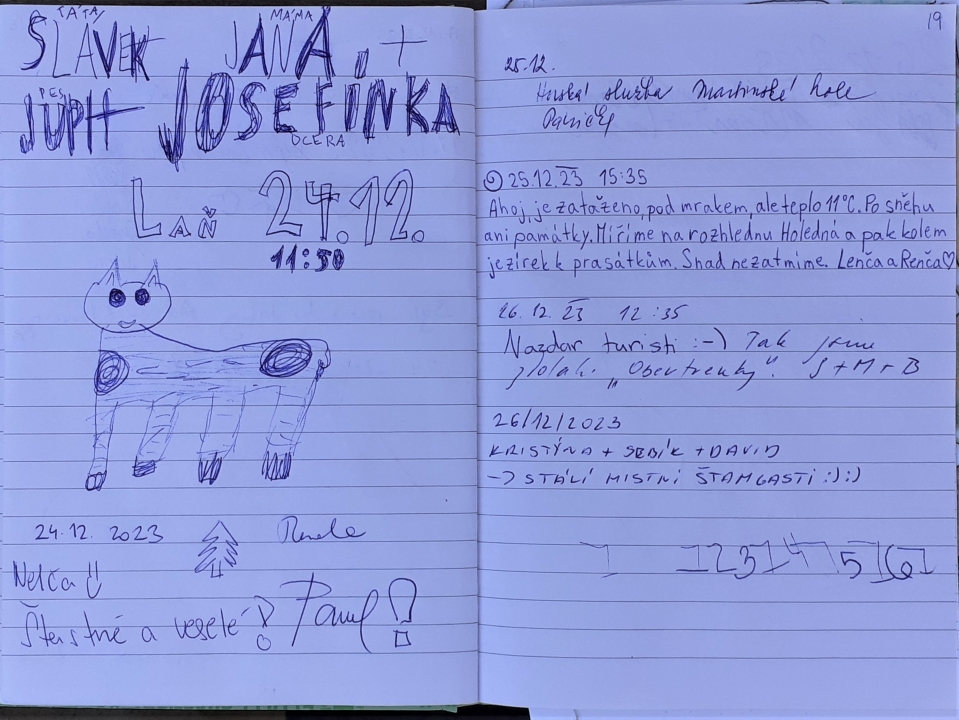 TÁTA MÁMA
SLÁVEK JANA, +
PES
JUPIT JOSEFINKA
DCERA
LAŇ 24.12.
11:50
24.12. 2023
Nelča
Šťastné a veselé! Pavel!
19
25.12.
Horská služba Martinské hole
25.12.23 15:35
Ahoj, je zataženo, pod mrakem, ale teplo 11°C. Po sněhu
ani památky. Míříme na rozhlednu Holedná a pak kolem
jezírek k prasátkům. Snad nezatmíme. Lenča a Renča♡
26.12.23 12:35
Nazdar turisti :-) Tak jsme
"Obertreuky". S + M + B
26/12/2023
KRISTÝNA + SEBÍK + DAVID
-> STÁLÍ MISTNÍ ŠTAMGASTI :) :)
1 123 4 5 6